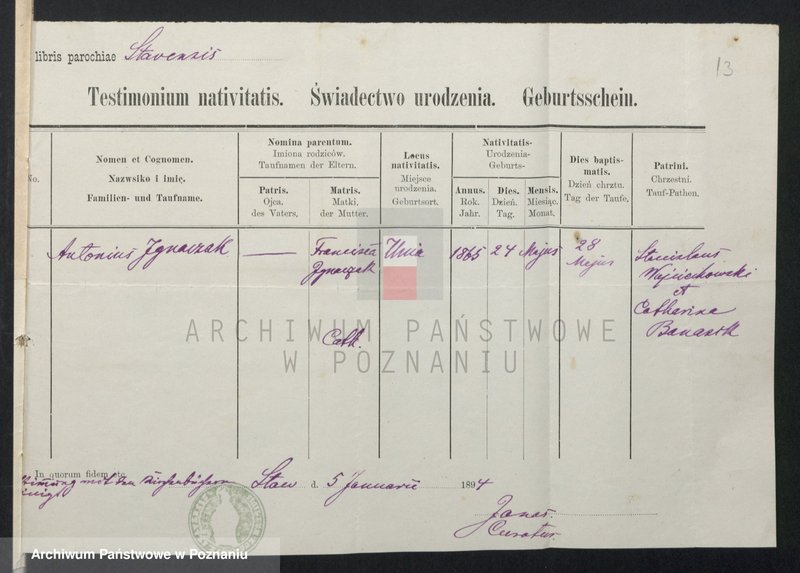 libris parochiae Stavensis
13
Testimonium nativitatis. Świadectwo urodzenia. Geburtsschein.
No.
Nomen et Cognomen.
Nazwsiko i imię.
Familien- und Taufname.
Nomina parentum.
Imiona rodziców.
Taufnamen der Eltern.
Patris.
Ojca.
des Vaters.
Matris.
Matki,
der Mutter.
Locus
nativitatis.
Miejsce
urodzenia.
Geburtsort.
Nativitatis-
Urodzenia-
Geburts-
Annus.
Rok.
Jahr.
Dies.
Dzień.
Tag.
Mensis.
Miesiąc.
Monat.
Dies baptis-
matis.
Dzień chrztu.
Tag der Taufe.
Patrini.
Chrzestni.
Tauf-Pathen.
Antonius Ignaczak
Francisca
Ignaczak
Cath.
Unia
1865
24
Majus
28
Majus
Stanislaus
Wojciechowski
et
Catharina
Banaszk
ARCHIWUM PAŃSTWOWE
W POZNANIU
In quorum fidem etc.
mit den Kirchenbüchern
Staw d. 5 Januarii 1894
Janas.
Curatus.
Archiwum Państwowe w Poznaniu